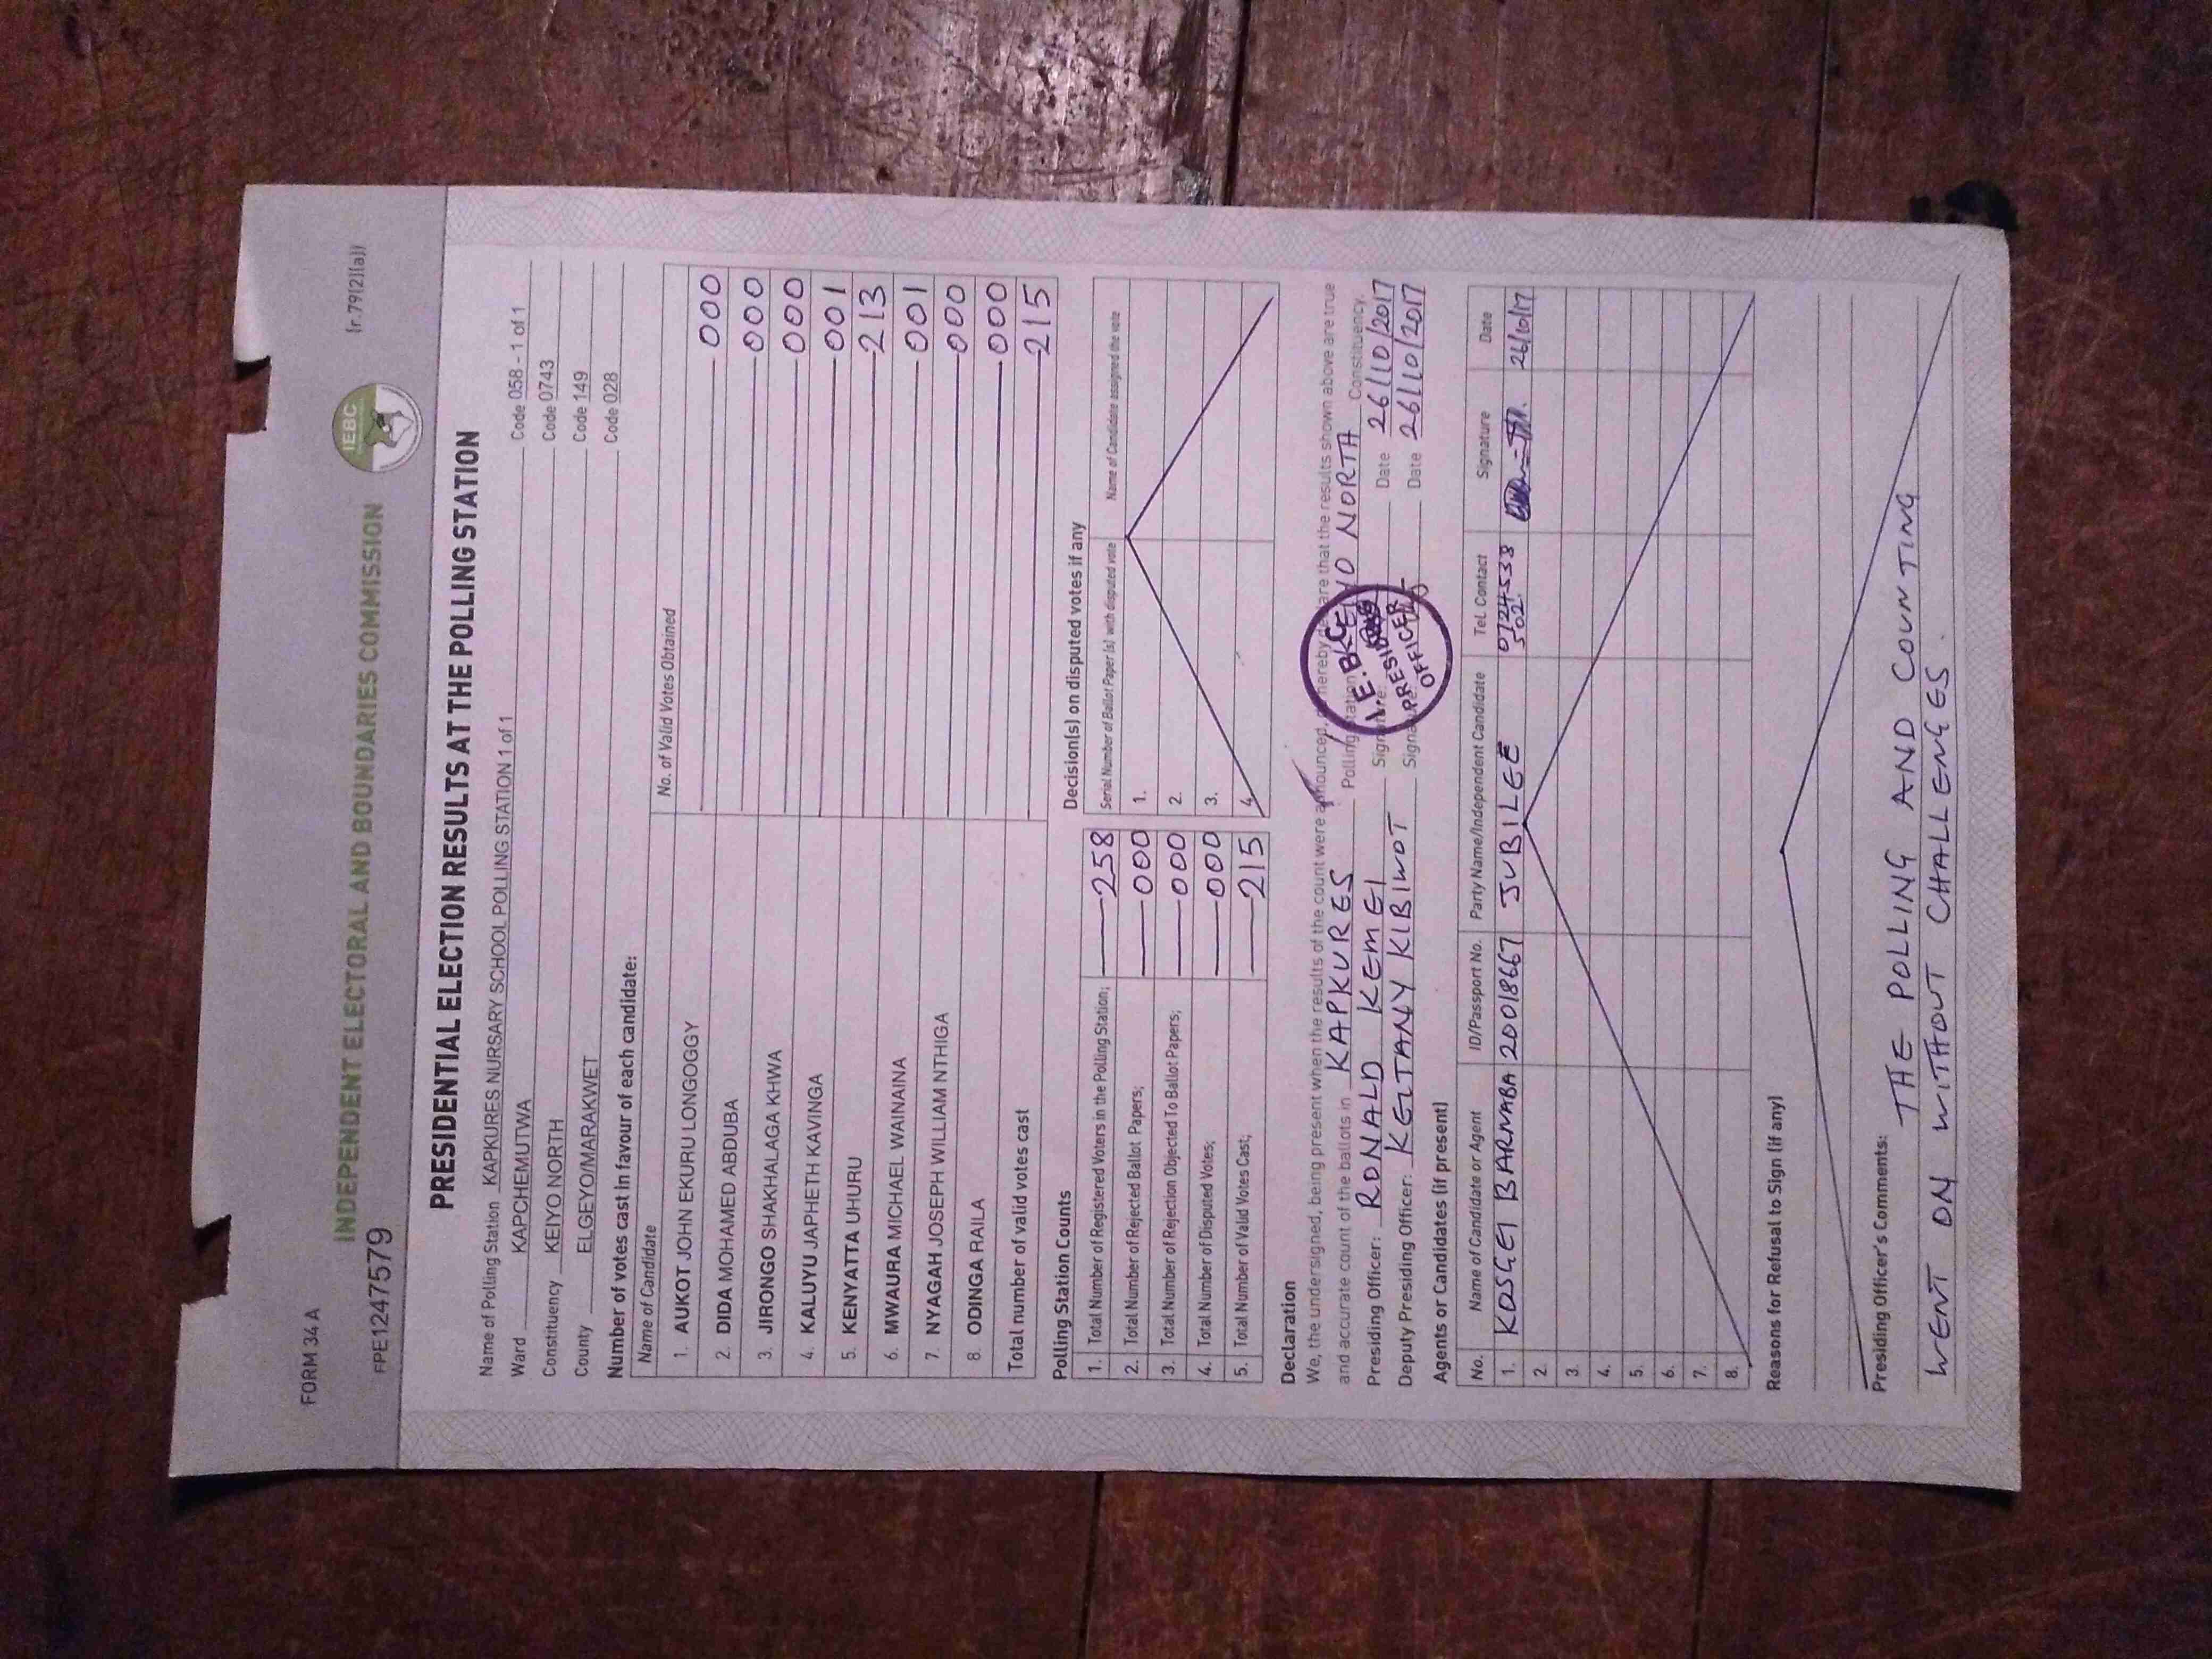 FORM 34 A (r.79(2)(a))
INDEPENDENT ELECTORAL AND BOUNDARIES COMMISSION
IEBC
FPE1247579
PRESIDENTIAL ELECTION RESULTS AT THE POLLING STATION
Name of Polling Station KAPKURES NURSARY SCHOOL POLLING STATION 1 of 1 Code 058 - 1 of 1
Ward KAPCHEMUTWA Code 0743
Constituency KEIYO NORTH Code 149
County ELGEYO/MARAKWET Code 028
Number of votes cast in favour of each candidate:
Name of Candidate No. of Valid Votes Obtained
1. AUKOT JOHN EKURU LONGOGGY 000
2. DIDA MOHAMED ABDUBA 000
3. JIRONGO SHAKHALAGA KHWA 000
4. KALUYU JAPHETH KAVINGA 001
5. KENYATTA UHURU 213
6. MWAURA MICHAEL WAINAINA 001
7. NYAGAH JOSEPH WILLIAM NTHIGA 000
8. ODINGA RAILA 000
Total number of valid votes cast 215
Polling Station Counts
1. Total Number of Registered Voters in the Polling Station; 258
2. Total Number of Rejected Ballot Papers; 000
3. Total Number of Rejection Objected To Ballot Papers; 000
4. Total Number of Disputed Votes; 000
5. Total Number of Valid Votes Cast; 215
Decision(s) on disputed votes if any
Serial Number of Ballot Paper (s) with disputed vote Name of Candidate assigned the vote
1.
2.
3.
4.
Declaration
We, the undersigned, being present when the results of the count were announced, do hereby declare that the results shown above are true
and accurate count of the ballots in KAPKURES Polling Station KEIYO NORTH Constituency.
Presiding Officer: RONALD KEMEI Signature: Date 26/10/2017
Deputy Presiding Officer: KELTANY KIBIWOT Signature: Date 26/10/2017
I.E.B.C
PRESIDING
OFFICER
Agents or Candidates (if present)
No. Name of Candidate or Agent ID/Passport No. Party Name/Independent Candidate Tel. Contact Signature Date
1. KOSGEI BARNABA 20018667 JUBILEE 0724538502. 26/10/17
2.
3.
4.
5.
6.
7.
8.
Reasons for Refusal to Sign (if any)
Presiding Officer's Comments: THE POLLING AND COUNTING
WENT ON WITHOUT CHALLENGES.